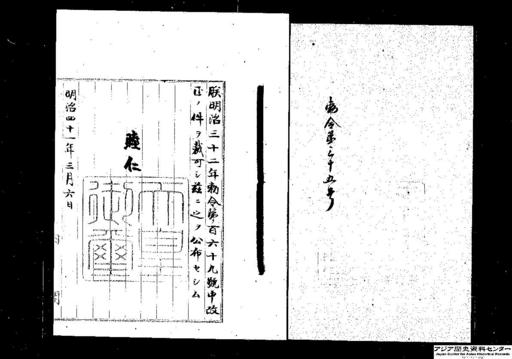 勅令第三十五号
朕明治三十二年勅令第百六十九號中改
正ノ件ヲ裁可シ茲ニ之ヲ公布セシム
睦仁
天皇御璽
明治四十一年三月六日
アジア歴史資料センター
Japan Center for Asian Historical Records